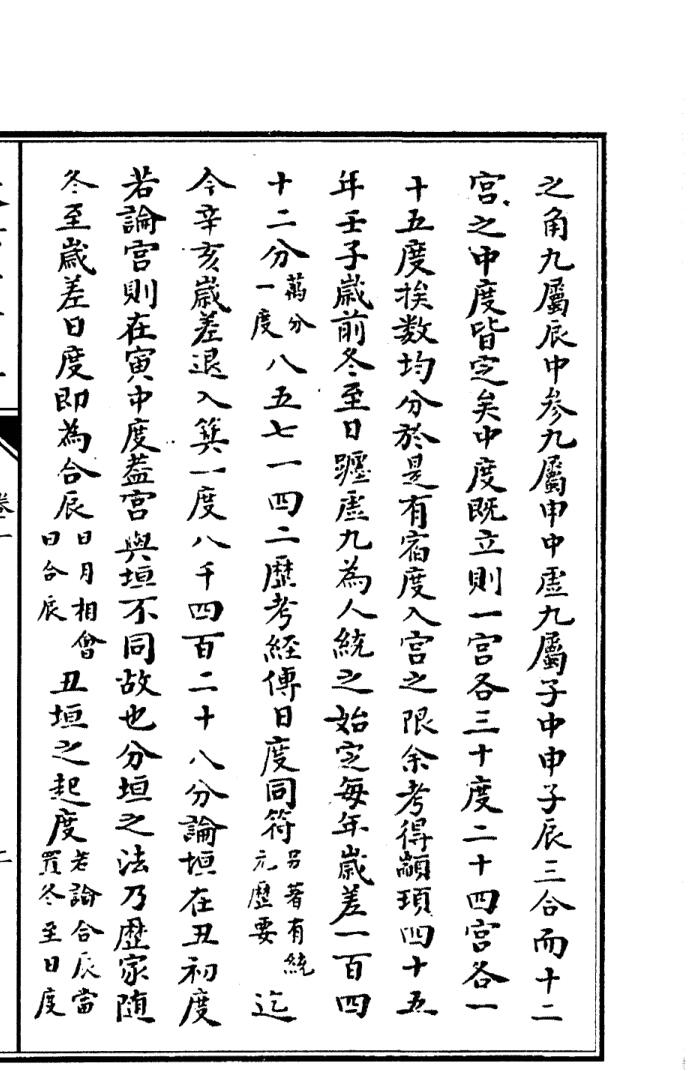 之角九屬辰中參九屬申中虛九屬子中申子辰三合而十二
宮之中度皆定矣中度既立則一宮各三十度二十四宮各一
十五度挨数均分於是有宿度入宮之限余考得顓頊四十五
年壬子歲前冬至日躔虛九為人統之始定每年歲差一百四
十二分萬分一度八五七一四二歷考經傳日度同符另著有統元歷要迄
今辛亥歲差退入箕一度八千四百二十八分論垣在丑初度
若論宮則在寅中度葢宮與垣不同故也分垣之法乃歷家随
冬至歲差日度即為合辰日月相會曰合辰丑垣之起度若論合辰當置冬至日度